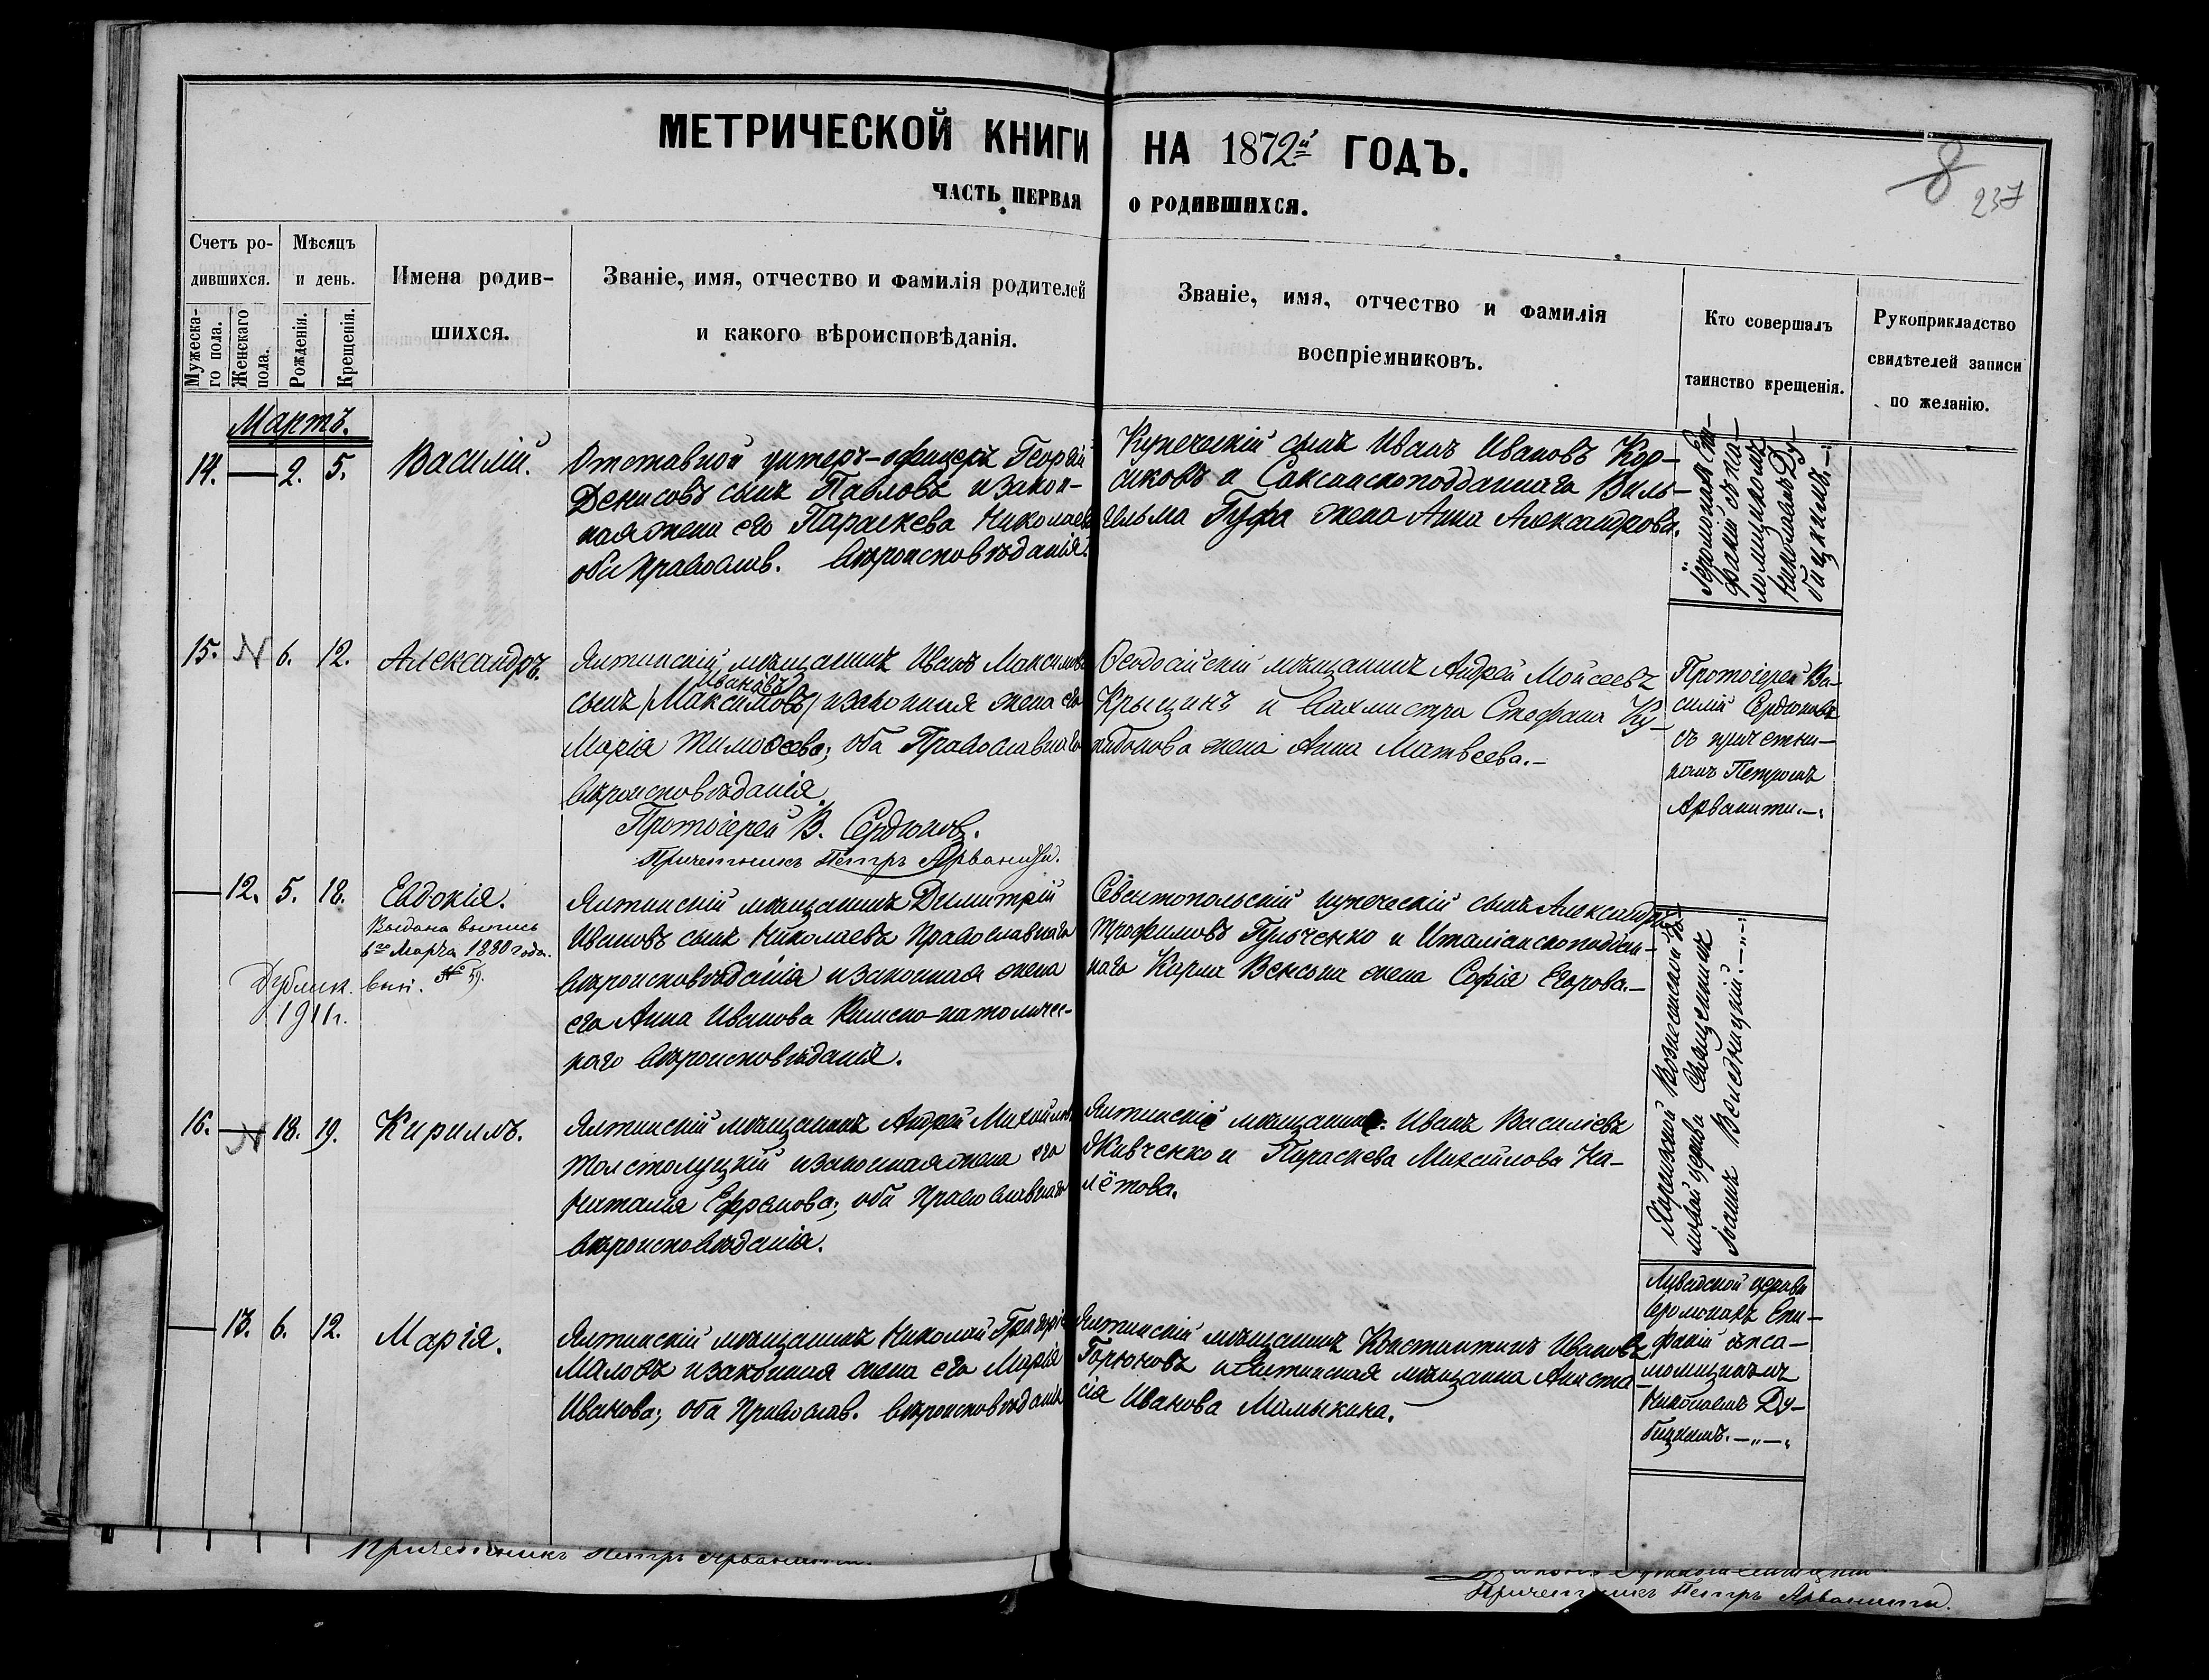 МЕТРИЧЕСКОЙ КНИГИ НА 1872й ГОДЪ.
ЧАСТЬ ПЕРВАЯ О РОДИВШИХСЯ.
8
237
Счетъ ро-
дившихся.
Мужеска-
го пола.
Женскаго
пола.
Мѣсяцъ
и день.
Рожденія.
Крещенія.
Имена родив-
шихся.
Званіе, имя, отчество и фамилія родителей
и какого вѣроисповѣданія.
Званіе, имя, отчество и фамилія
воспріемниковъ.
Кто совершалъ
таинство крещенія.
Рукоприкладство
свидѣтелей записи
по желанію.
Мартъ.
14. — 2. 5.
Василій.
Отставной унтеръ-офицеръ Георгій
Денисовъ сынъ Павловъ и закон-
ная жена его Параскева Николаева
оба православ. вѣроисповѣданія.
Купеческій сынъ Иванъ Ивановъ Кор-
сиковъ и Саксанскоподданнаго Виль-
гельма Гуфа жена Анна Александрова.
Іеромонахъ Епи-
фаній съ пса-
ломщикомъ
Николаемъ Ду-
бицкимъ.—
15. N 6. 12.
Александръ.
Ялтинскій мѣщанинъ Иванъ Максимовъ
Ивановъ
сынъ (Максимовъ) и законная жена его
Марія Тимоѳеева; оба Православнаго
вѣроисповѣданія.
Протоіерей В. Сердюковъ.
Причетникъ Петръ Арванити.
Ѳеодосійскій мѣщанинъ Андрей Мойсеевъ
Крысинъ и вахмистра Стефана Ку-
пидонова жена Анна Матвеева.—
Протоіерей Ва-
силій Сердюковъ
съ причетни-
комъ Петромъ
Арванити.—
— 12. 5. 18.
Евдокія.
Выдана выпись
6го Марта 1880 года.
№ 59.
Дублик. вып.
1911г.
Ялтинскій мѣщанинъ Димитрій
Ивановъ сынъ Николаевъ Православнаго
вѣроисповѣданія и законная жена
его Анна Иванова Римско-католичес-
каго вѣроисповѣданія.
Севастопольскій купеческій сынъ Александръ
Трофимовъ Прьченко и Италіанскоподдан-
наго Карла жена Софія Егорова.—
церкви Священникъ
Іоаннъ
16. — N 18. 19.
Кириллъ.
Ялтинскій мѣщанинъ Андрей Михайловъ
Толстолуцкій и законная жена его
Наталія Ефремова; оба Православнаго
вѣроисповѣданія.
Ялтинскіе мѣщане: Иванъ Василіевъ
Живченко и Параскева Михайлова Ка-
лётова.
— 13. 6. 12.
Марія.
Ялтинскій мѣщанинъ Николай Григоріевъ
Маловъ и законная жена его Марія
Иванова; оба Православ. вѣроисповѣданія
Ялтинскій мѣщанинъ Константинъ Ивановъ
Горюновъ и Ялтинская мѣщанка Анаста-
сія Иванова Мамыкина.
Ливадской церкви
іеромонахъ Епи-
фаній съ пса-
ломщикомъ
Николаемъ Ду-
бицкимъ.—„—
Причетникъ Петръ Арванити.
Причетникъ Петръ Арванити.